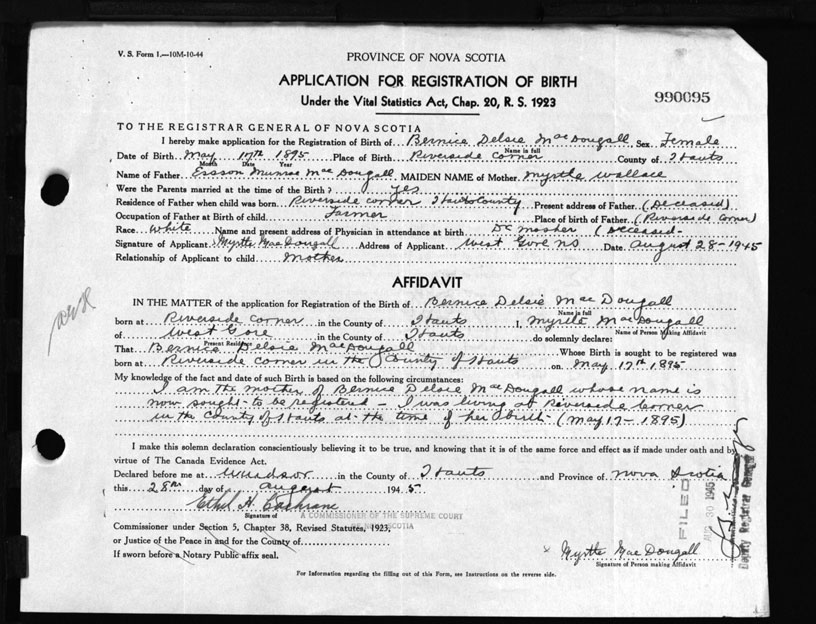 V. S. Form 1.—10M-10-44
PROVINCE OF NOVA SCOTIA
APPLICATION FOR REGISTRATION OF BIRTH
Under the Vital Statistics Act, Chap. 20, R. S. 1923
990095
TO THE REGISTRAR GENERAL OF NOVA SCOTIA
I hereby make application for the Registration of Birth of Bernice Delsie MacDougall Sex Female
Name in full
Date of Birth May 17th 1895 Place of Birth Riverside Corner County of Hants
Month Date Year
Name of Father Munroe MacDougall MAIDEN NAME of Mother Myrtle Wallace
Were the Parents married at the time of the Birth? Yes
Residence of Father when child was born Riverside Corner Hants County Present address of Father (Deceased)
Occupation of Father at Birth of child Farmer Place of birth of Father (Riverside Corner)
Race White Name and present address of Physician in attendance at birth Dr Mosher (Deceased-
Signature of Applicant Myrtle MacDougall Address of Applicant West Gore NS Date August 28-1945
Relationship of Applicant to child Mother
AFFIDAVIT
IN THE MATTER of the application for Registration of the Birth of Bernice Delsie MacDougall
Name in full
born at Riverside Corner in the County of Hants I, Myrtle MacDougall
Name of Person Making Affidavit
of West Gore in the County of Hants do solemnly declare:
Present Residence
That Bernice Delsie MacDougall Whose Birth is sought to be registered was
born at Riverside Corner in the County of Hants on May 17th 1895
My knowledge of the fact and date of such Birth is based on the following circumstances:
I am the mother of Bernice Delsie MacDougall whose name is
now sought to be registered - I was living at Riverside Corner
in the County of Hants at the time of her birth - (May 17-1895)
I make this solemn declaration conscientiously believing it to be true, and knowing that it is of the same force and effect as if made under oath and by
virtue of The Canada Evidence Act.
Declared before me at Windsor in the County of Hants and Province of Nova Scotia
this 28th day of August 1945
Ethel H. Cochrane
Signature of
A COMMISSIONER OF THE SUPREME COURT
OF NOVA SCOTIA
Commissioner under Section 5, Chapter 38, Revised Statutes, 1923,
or Justice of the Peace in and for the County of
If sworn before a Notary Public affix seal.
x Myrtle MacDougall
Signature of Person making Affidavit
For Information regarding the filling out of this Form, see Instructions on the reverse side.
FILED
AUG 30 1945
Deputy Registrar General